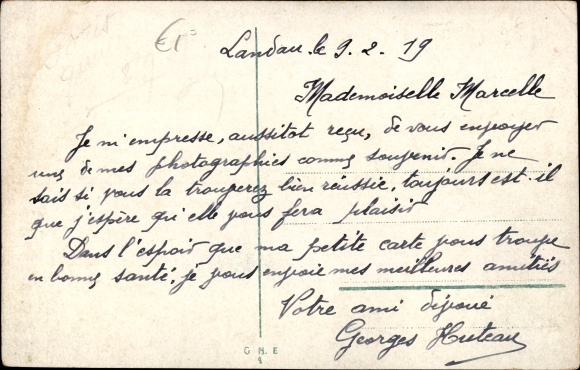 €1=
Landau le 9.2.19
Mademoiselle Marcelle
Je m'empresse, aussitot reçu, de vous envoyer
une de mes photographies comme souvenir. Je ne
sais si vous la trouverez bien réussie, toujours est-il
que j'espère qu'elle vous fera plaisir
Dans l'espoir que ma petite carte vous trouve
en bonne santé, je vous envoie mes meilleures amitiés
Votre ami dévoué
Georges Huteau
G.N.E
1